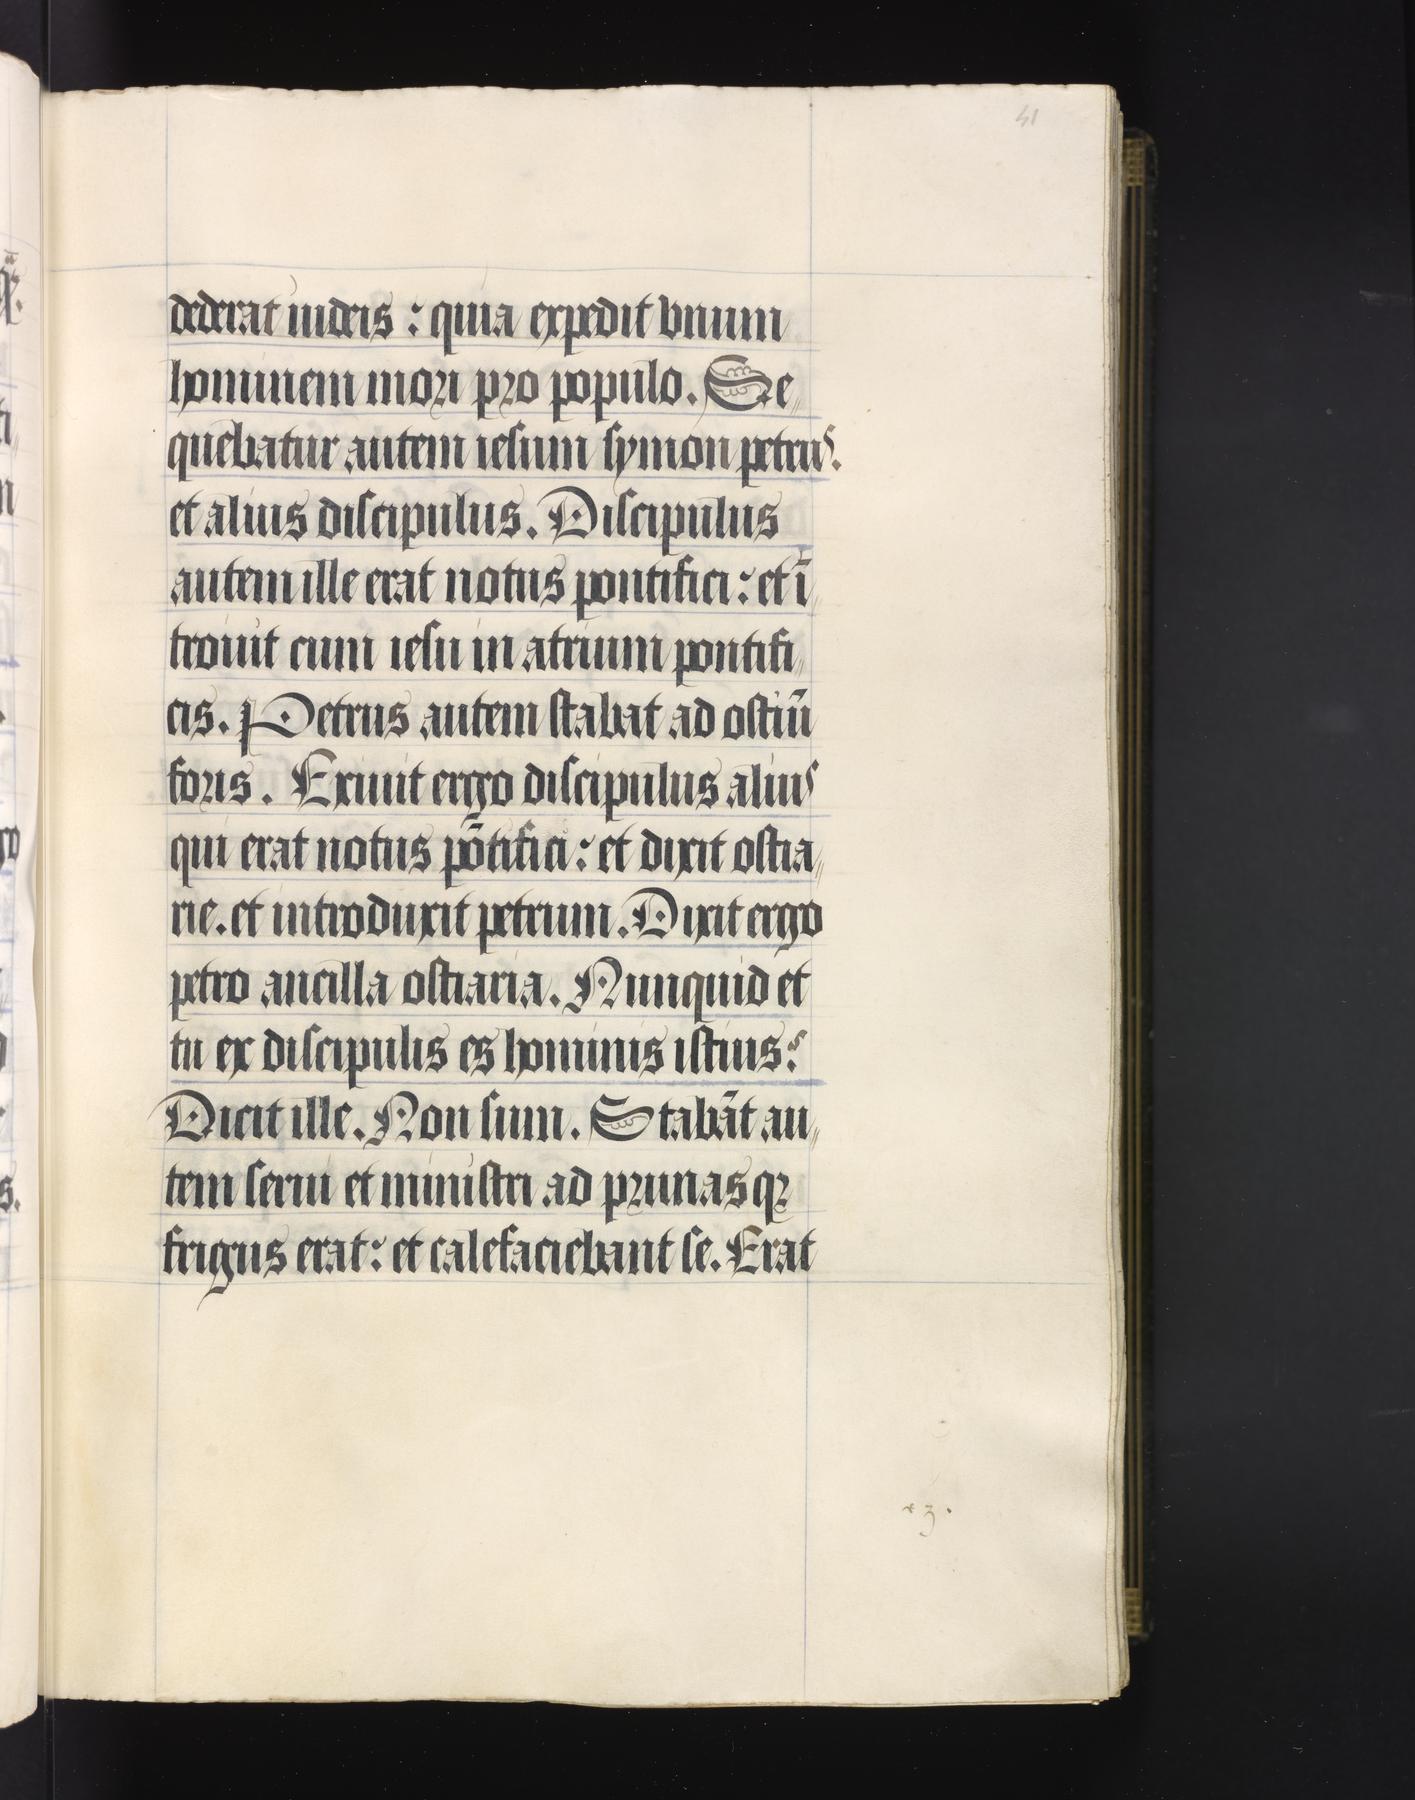 41
dederat iudeis : quia expedit vnum
hominem mori pro populo. Se
quebatur autem iesum symon petrus.
et alius discipulus. Discipulus
autem ille erat notus pontifici : et ī
troiuit cum iesu in atrium pontifi
cis. Petrus autem stabat ad ostiū
foris. Exiuit ergo discipulus alius
qui erat notus pōtifici : et dixit ostia
rie. et introduxit petrum. Dixit ergo
petro ancilla ostiaria. Nunquid et
tu ex discipulis es hominis istius?
Dicit ille. Non sum. Stabāt au
tem serui et ministri ad prunas qꝛ
frigus erat : et calefaciebant se. Erat